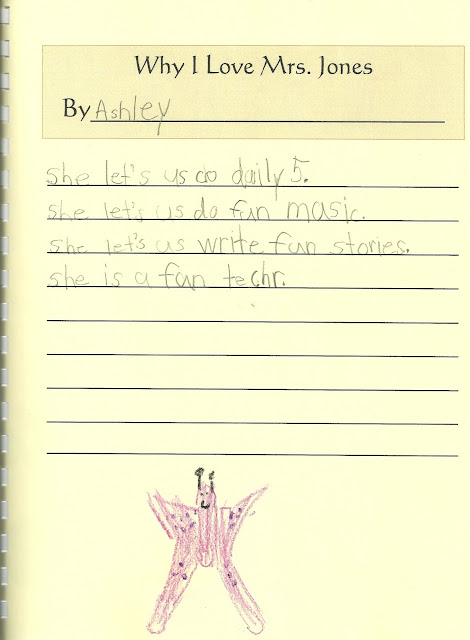 Why I Love Mrs. Jones
By Ashley
she let's us do daily 5.
she let's us do fun masic.
she let's us write fun stories.
she is a fan techr.